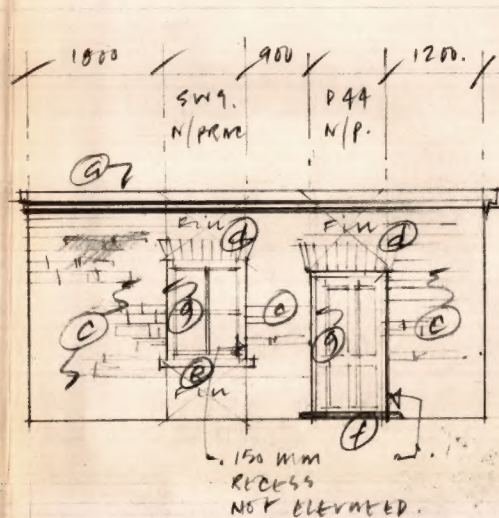 1800 900 1200.
SW9. D44
N/PRAC N/P.
a
Fin d Fin d
c g a g c
e
Fin
f
150 mm
RECESS
NOT ELEVATED.